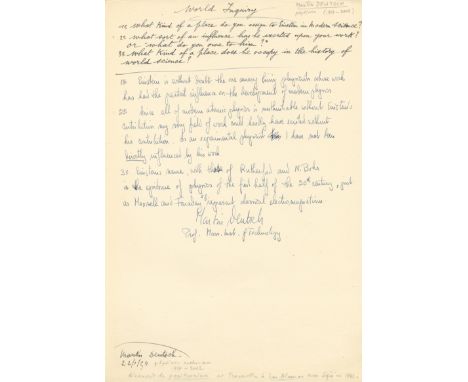 World Inquiry
Martin DEUTSCH
physicien
(1917 - 2002)
1) What kind of a place do you assign to Einstein in Modern Science?
2) What sort of an influence has he exerted upon your work?
or what do you owe to him?
3) What kind of a place does he occupy in the history of
world science?
1) Einstein is without doubt the one among living physicists whose work
has had the greatest influence on the development of modern physics
2) Since all of modern atomic physics is unthinkable without Einstein's
contribution my very field of work could hardly have existed without
his contribution. As an experimental physicist I have not been
directly influenced by his work
3) Einstein's name with that of Rutherford and N. Bohr
is the epitome of physics of the first half of the 20th century, just
as Maxwell and Faraday represent classical electromagnetism
Martin Deutsch
Prof. Mass. Inst. of Technology
Martin Deutsch
physicien
1917 - 2002
du positronium et Travailla à Los Alamos